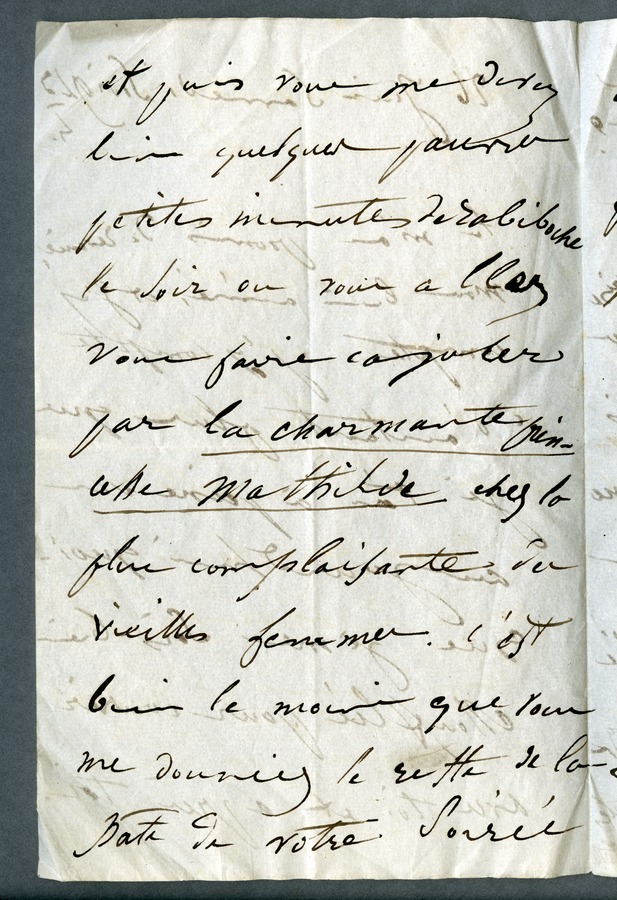 et puis vous me devez
bien quelques pauvres
petites minutes de rabiboche
le soir ou vous allez
vous faire cajoler
par la charmante prin-
cesse Mathilde chez la
plus complaisante des
vieilles femmes. c'est
bien le moins que vous
me donniez le reste de la
patte de votre Soirée